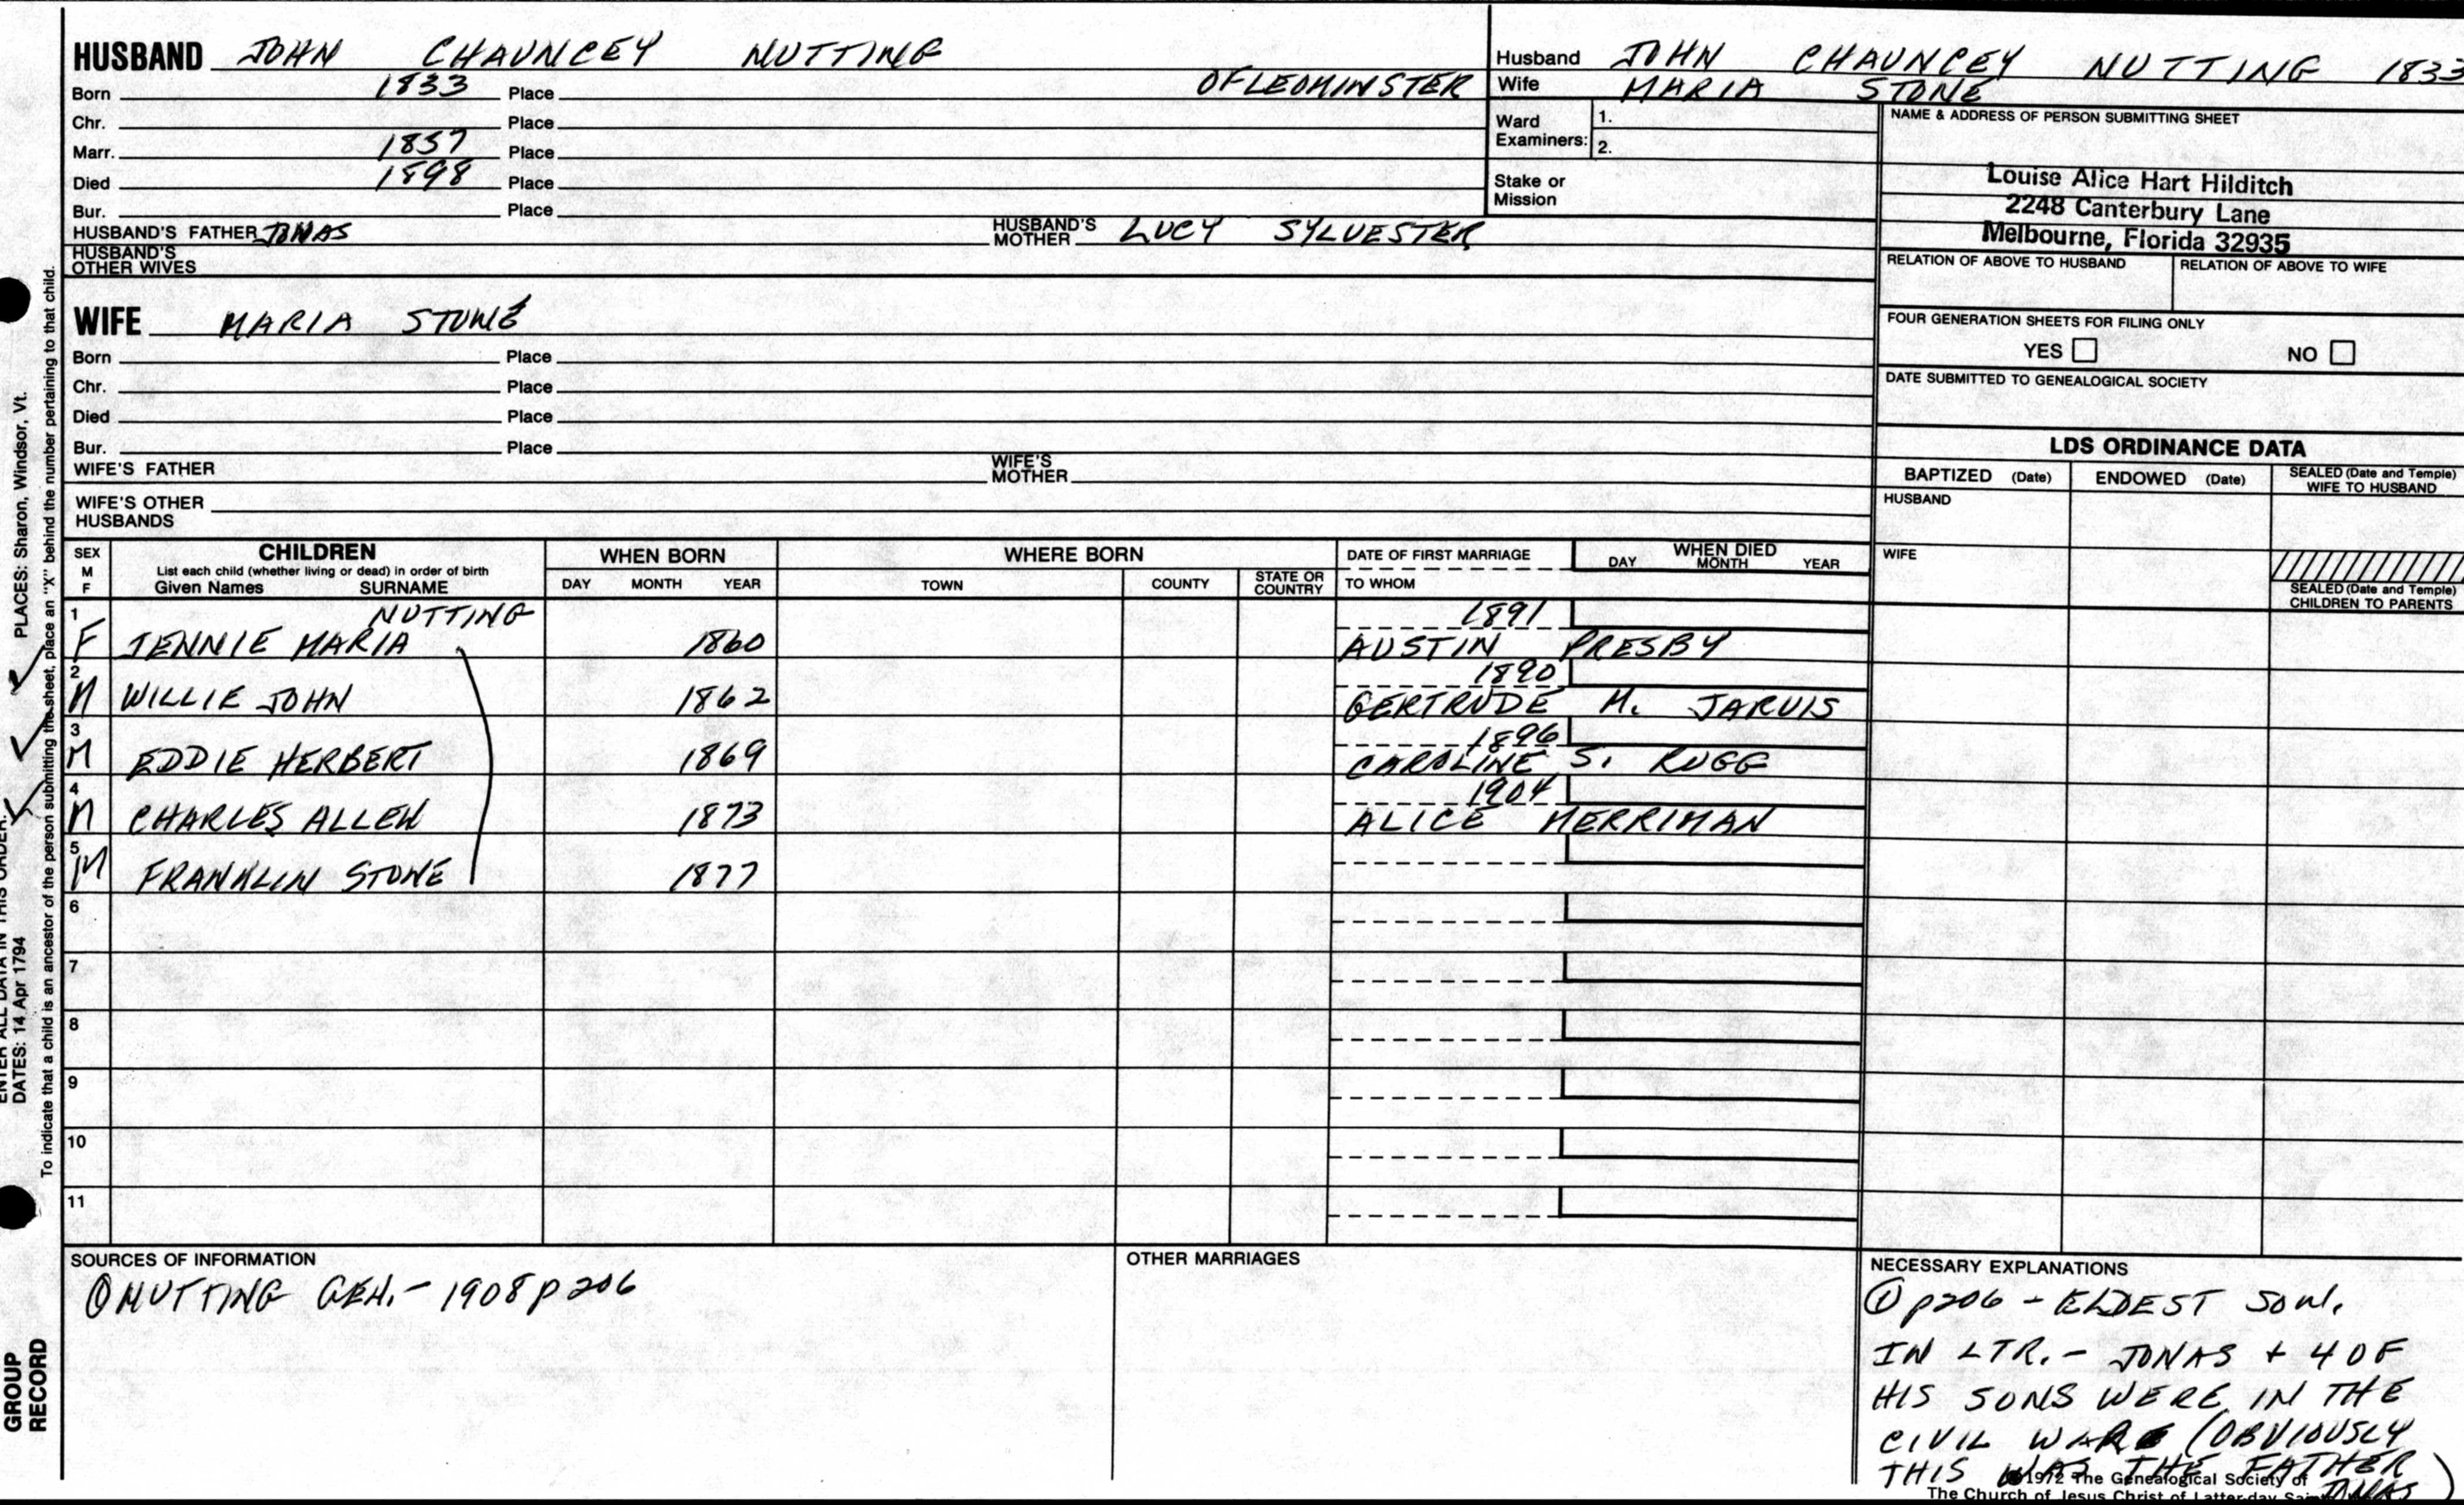 HUSBAND JOHN CHAUNCEY NUTTING
Born 1833 Place OF LEOMINSTER
Chr. Place
Marr. 1857 Place
Died 1898 Place
Bur. Place
HUSBAND'S FATHER JONAS HUSBAND'S MOTHER LUCY SYLVESTER
HUSBAND'S OTHER WIVES
Husband JOHN CHAUNCEY NUTTING 1833
Wife MARIA STONE
Ward Examiners: 1.
2.
Stake or Mission
NAME & ADDRESS OF PERSON SUBMITTING SHEET
Louise Alice Hart Hilditch
2248 Canterbury Lane
Melbourne, Florida 32935
RELATION OF ABOVE TO HUSBAND RELATION OF ABOVE TO WIFE
FOUR GENERATION SHEETS FOR FILING ONLY
YES NO
DATE SUBMITTED TO GENEALOGICAL SOCIETY
WIFE MARIA STONE
Born Place
Chr. Place
Died Place
Bur. Place
WIFE'S FATHER WIFE'S MOTHER
WIFE'S OTHER HUSBANDS
LDS ORDINANCE DATA
BAPTIZED (Date) ENDOWED (Date) SEALED (Date and Temple) WIFE TO HUSBAND
HUSBAND
WIFE
SEALED (Date and Temple) CHILDREN TO PARENTS
SEX M F CHILDREN WHEN BORN WHERE BORN DATE OF FIRST MARRIAGE WHEN DIED
List each child (whether living or dead) in order of birth
Given Names SURNAME DAY MONTH YEAR TOWN COUNTY STATE OR COUNTRY TO WHOM DAY MONTH YEAR
1 NUTTING 1891
F JENNIE MARIA 1860 AUSTIN PRESBY
2 1890
M WILLIE JOHN 1862 GERTRUDE M. JARVIS
3 1896
M EDDIE HERBERT 1869 CAROLINE S. RUGG
4 1904
M CHARLES ALLEN 1873 ALICE MERRIMAN
5
M FRANKLIN STONE 1877
6
7
8
9
10
11
SOURCES OF INFORMATION
① NUTTING GEN. - 1908 p 206
OTHER MARRIAGES
NECESSARY EXPLANATIONS
① p206 - ELDEST SON.
IN LTR. - JONAS + 4 OF
HIS SONS WERE IN THE
CIVIL WAR (OBVIOUSLY
THIS WAS THE FATHER
JONAS)
1972 The Genealogical Society of
The Church of Jesus Christ of Latter-day
ENTER ALL DATA IN THIS ORDER:
DATES: 14 Apr 1794
PLACES: Sharon, Windsor, Vt.
To indicate that a child is an ancestor of the person submitting the sheet, place an "X" behind the number pertaining to that child.
GROUP
RECORD